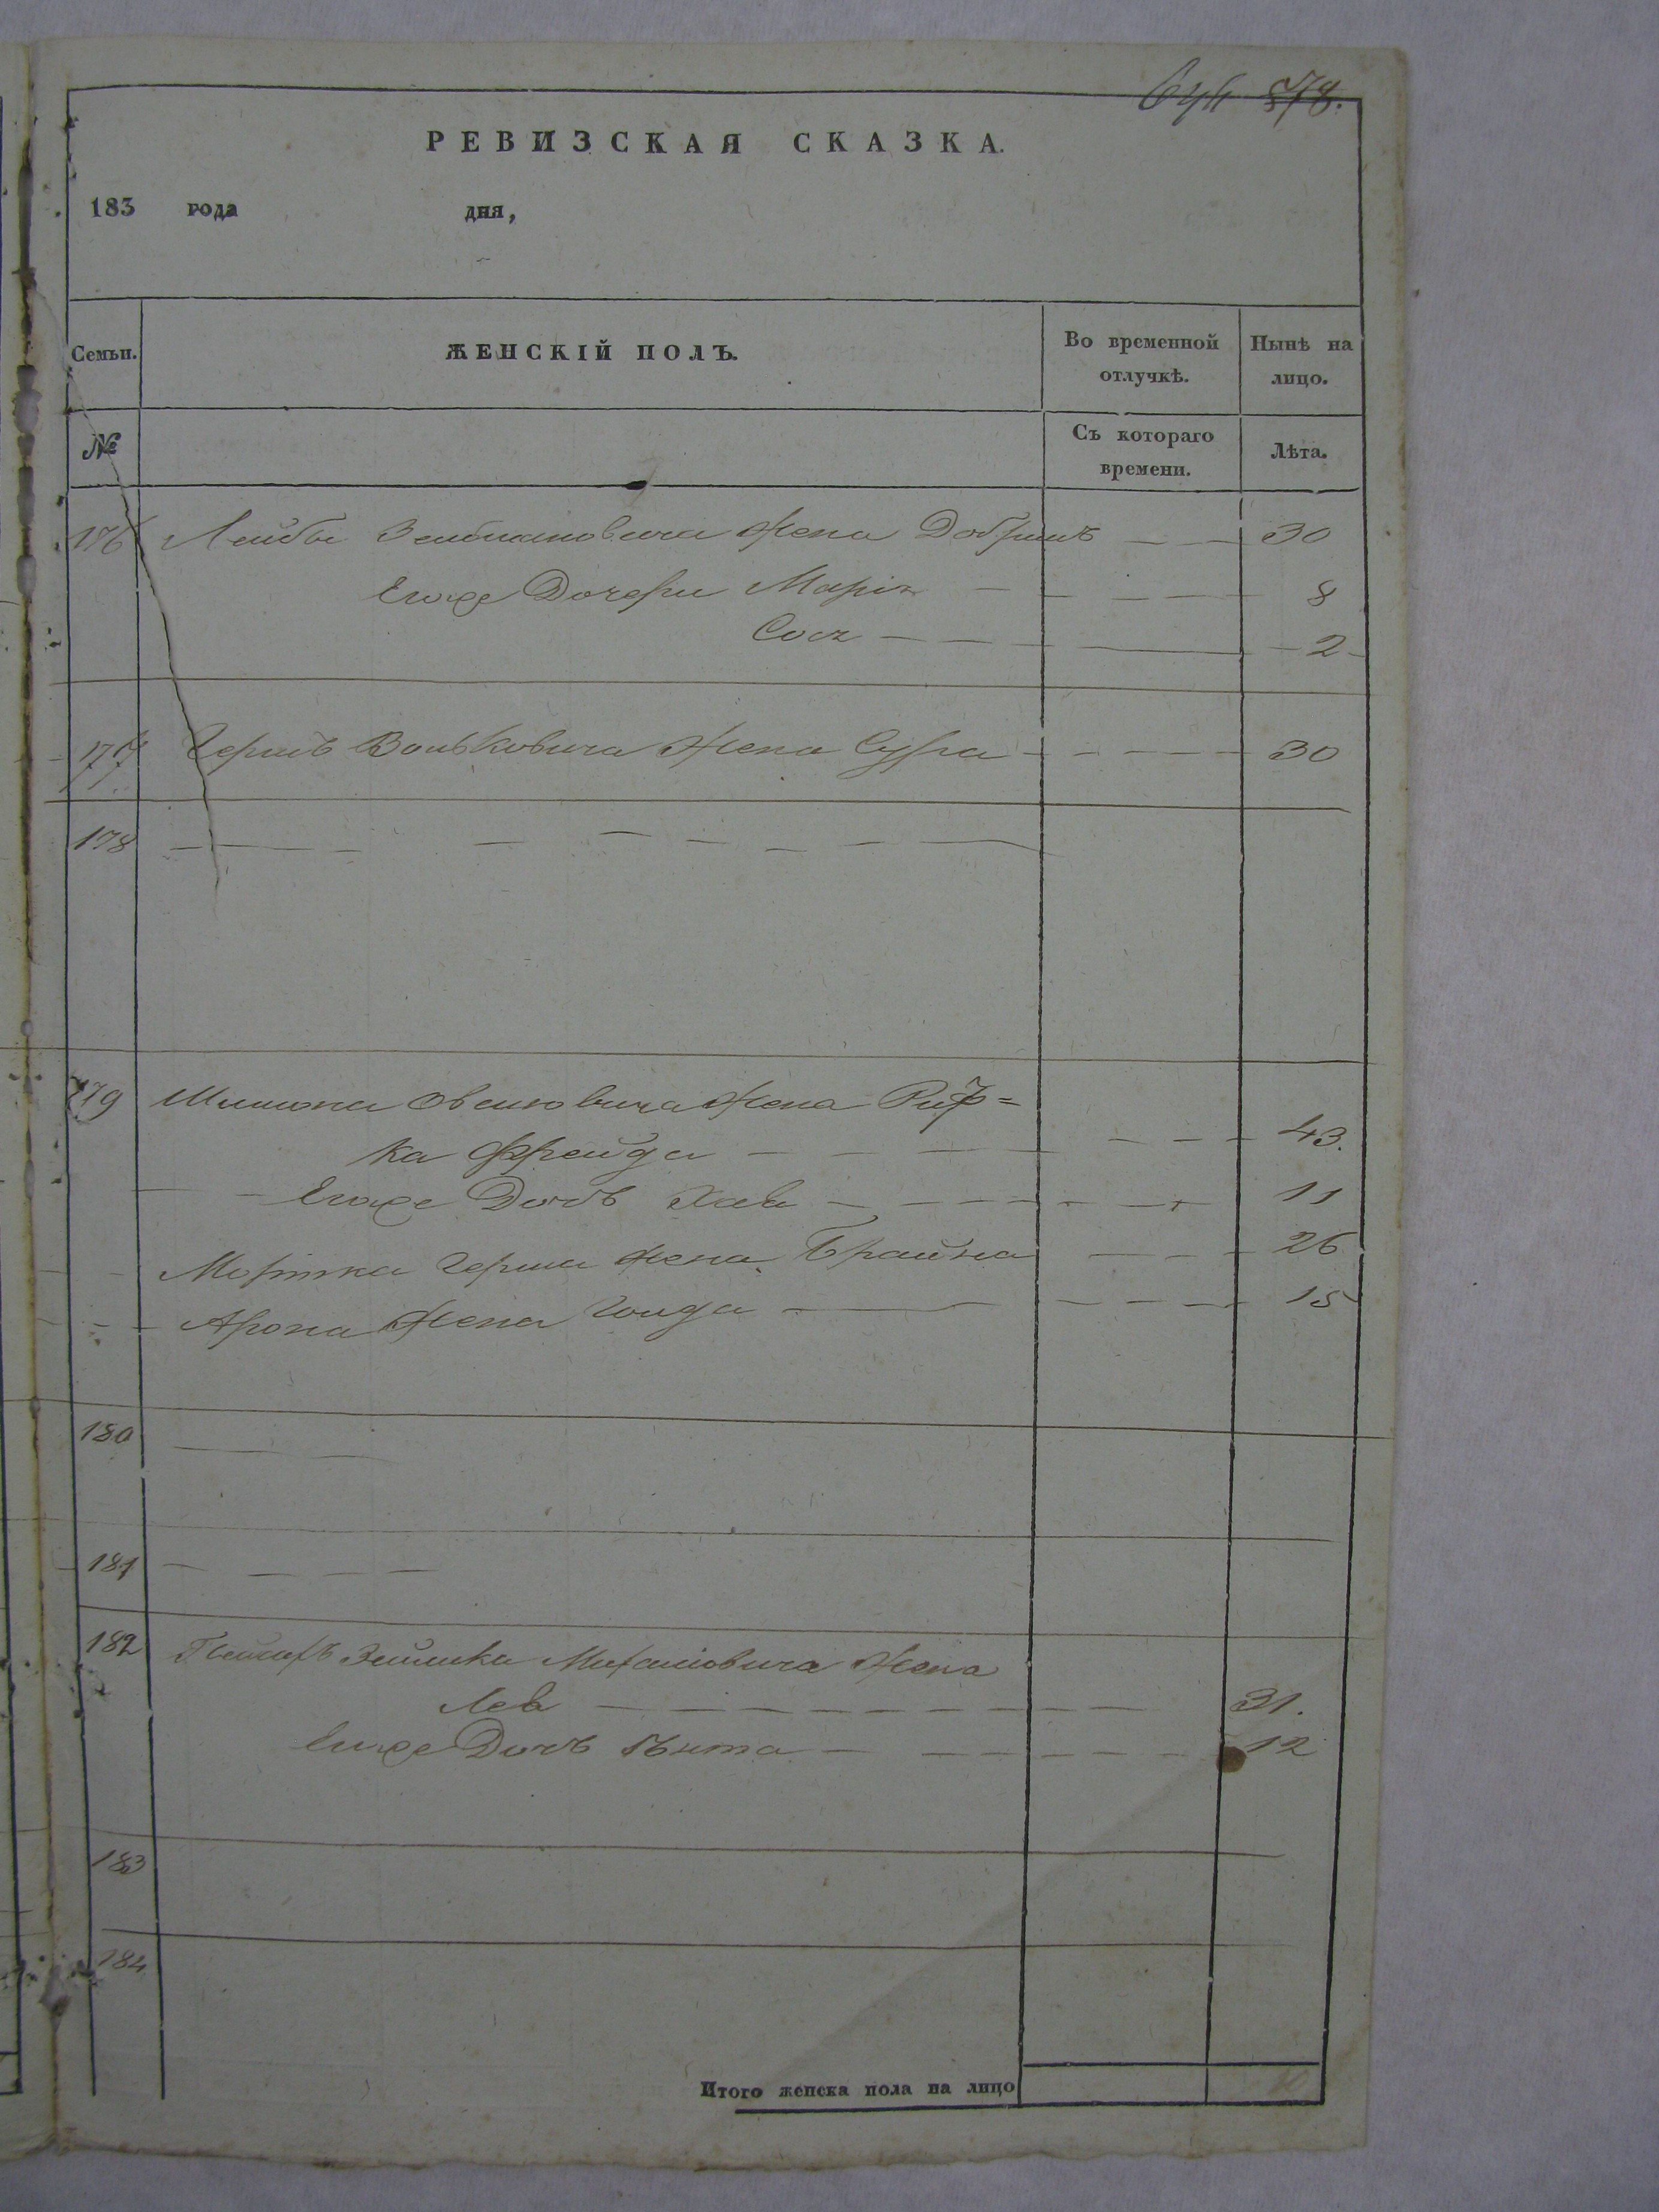 578.
РЕВИЗСКАЯ СКАЗКА.
183 года дня,
Семьи. ЖЕНСКІЙ ПОЛЪ. Во временной отлучкѣ. Нынѣ на лицо.
№ Съ котораго времени. Лѣта.
176 Лейбы Зельмановича Жена Добришъ 30
Егоже Дочери Марія 8
Сося 2
177 Гершъ Вольковича Жена Сурра 30
178
179 Шимона Овсеювича Жена Риф=
ка Фрейда 43.
Егоже Дочь Хава 11
Мортка Герша Жена Брайна 26
Арона Жена Голда 15
180
181
182 Зелика Михелiовича Жена
Лея 31.
Егоже Дочь 12
183
184
Итого женска пола на лицо 10